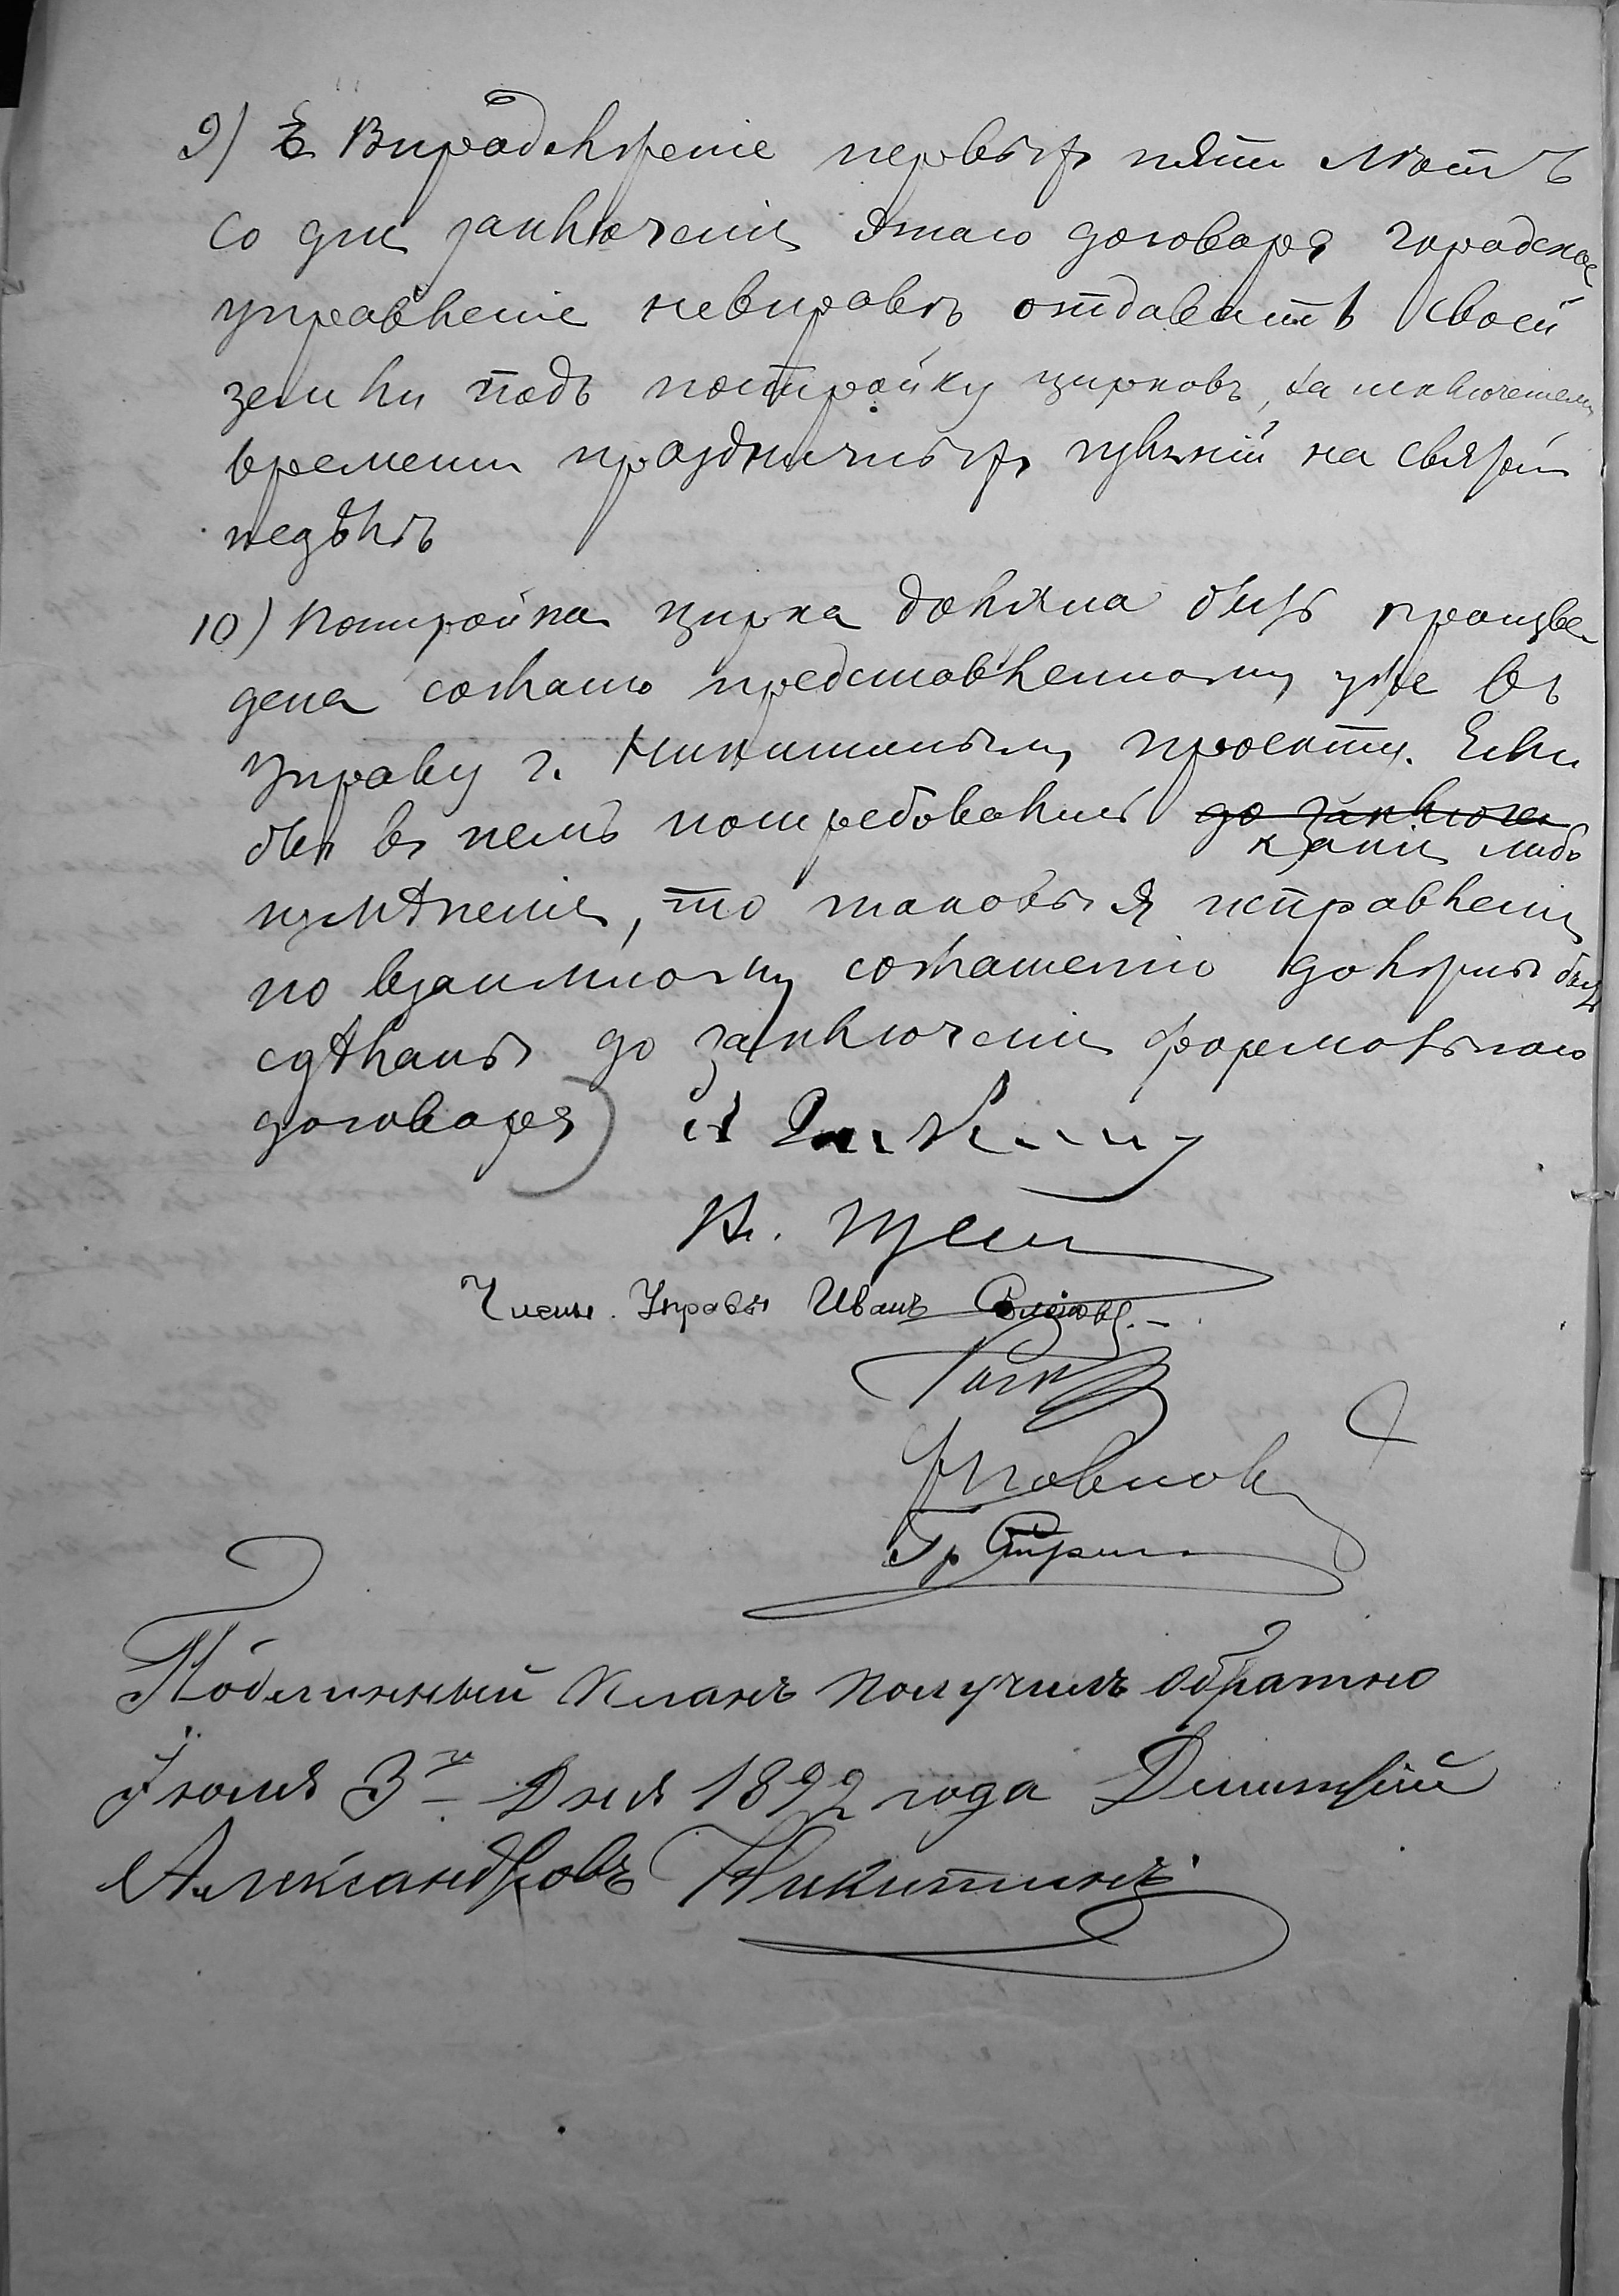 9) Впродолженіе первыхъ пяти лѣтъ
со дня заключенія этаго договора городское
управленіе невправѣ отдавать своей
земли подъ постройку цирковъ, за исключеніемъ
времени праздничныхъ гуляній на святой
недѣлѣ
10) Постройка цирка должна быть произве
дена согласно представленному уже въ
Управу г. Никитинымъ, проекту. Если
бы въ немъ потребовались до заключен
какія либо
измѣненія, то таковыя исправленія
по взаимному соглашенію должны быть
сдѣланы до заключенія формальнаго
договора
Члены Управы Иванъ
Подлинный планъ получилъ обратно
Іюля 3го Дня 1892 года Димитрій
Александровъ Никитинъ